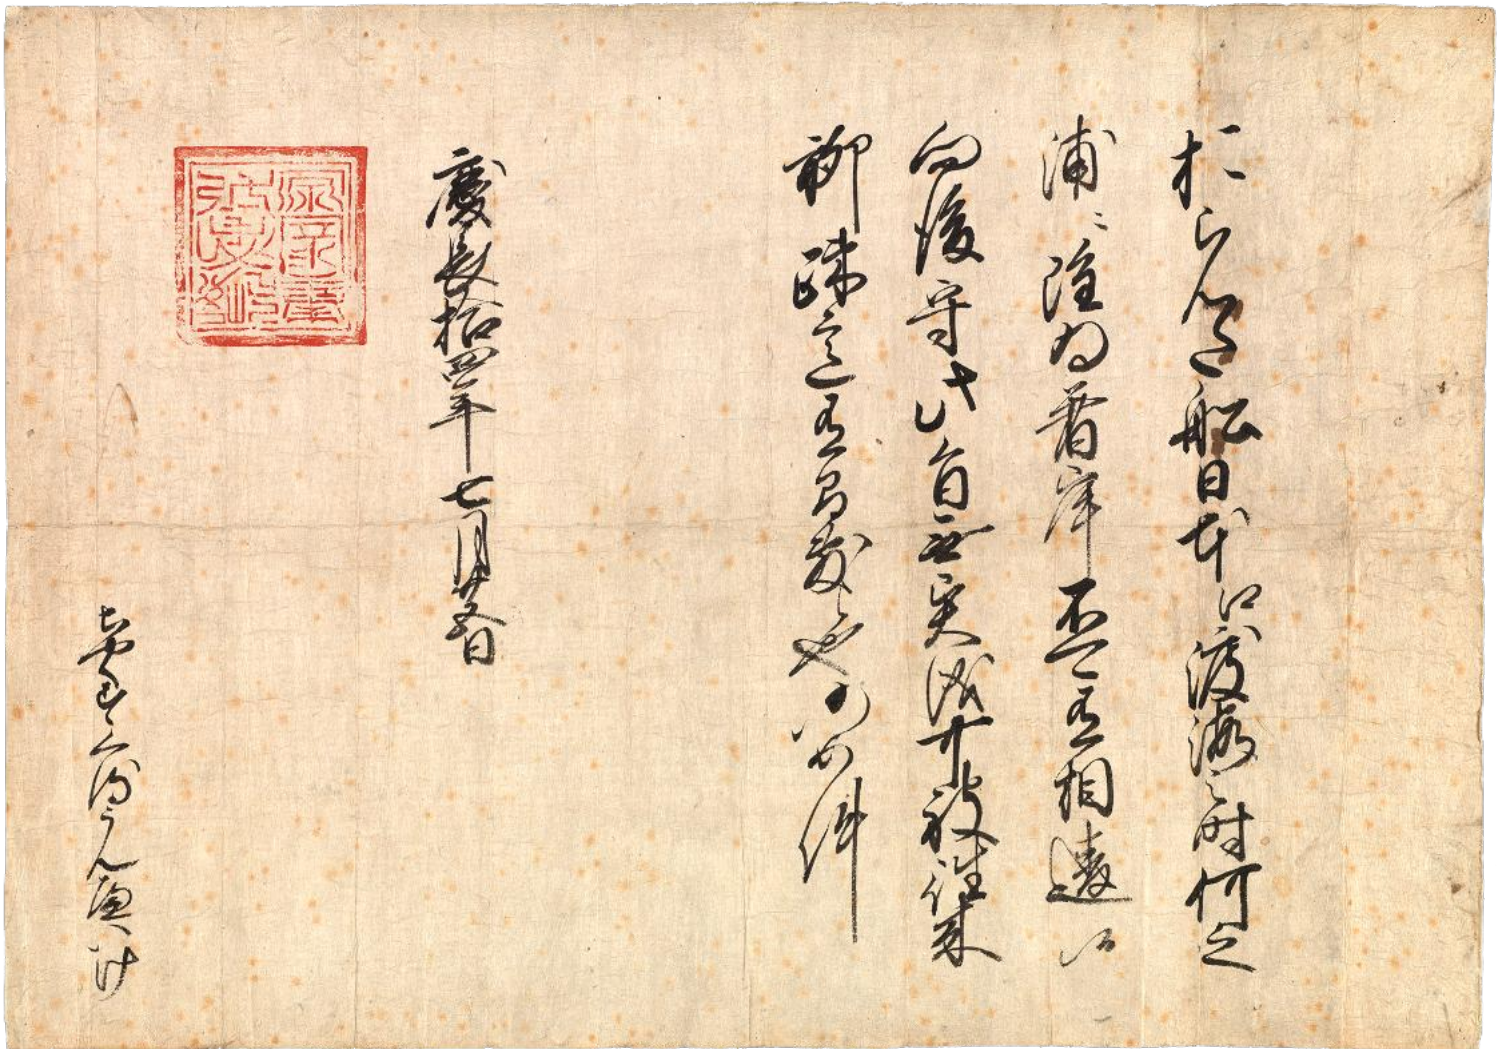 おらんた船日本江渡海之時何之
浦ニ雖為着岸不可有相違候
向後守此旨無異儀可被往来
聊疎意有間敷候也仍如件
慶長拾四年七月廿五日
源家康弘忠恕
ちやくすくるうんへいけ